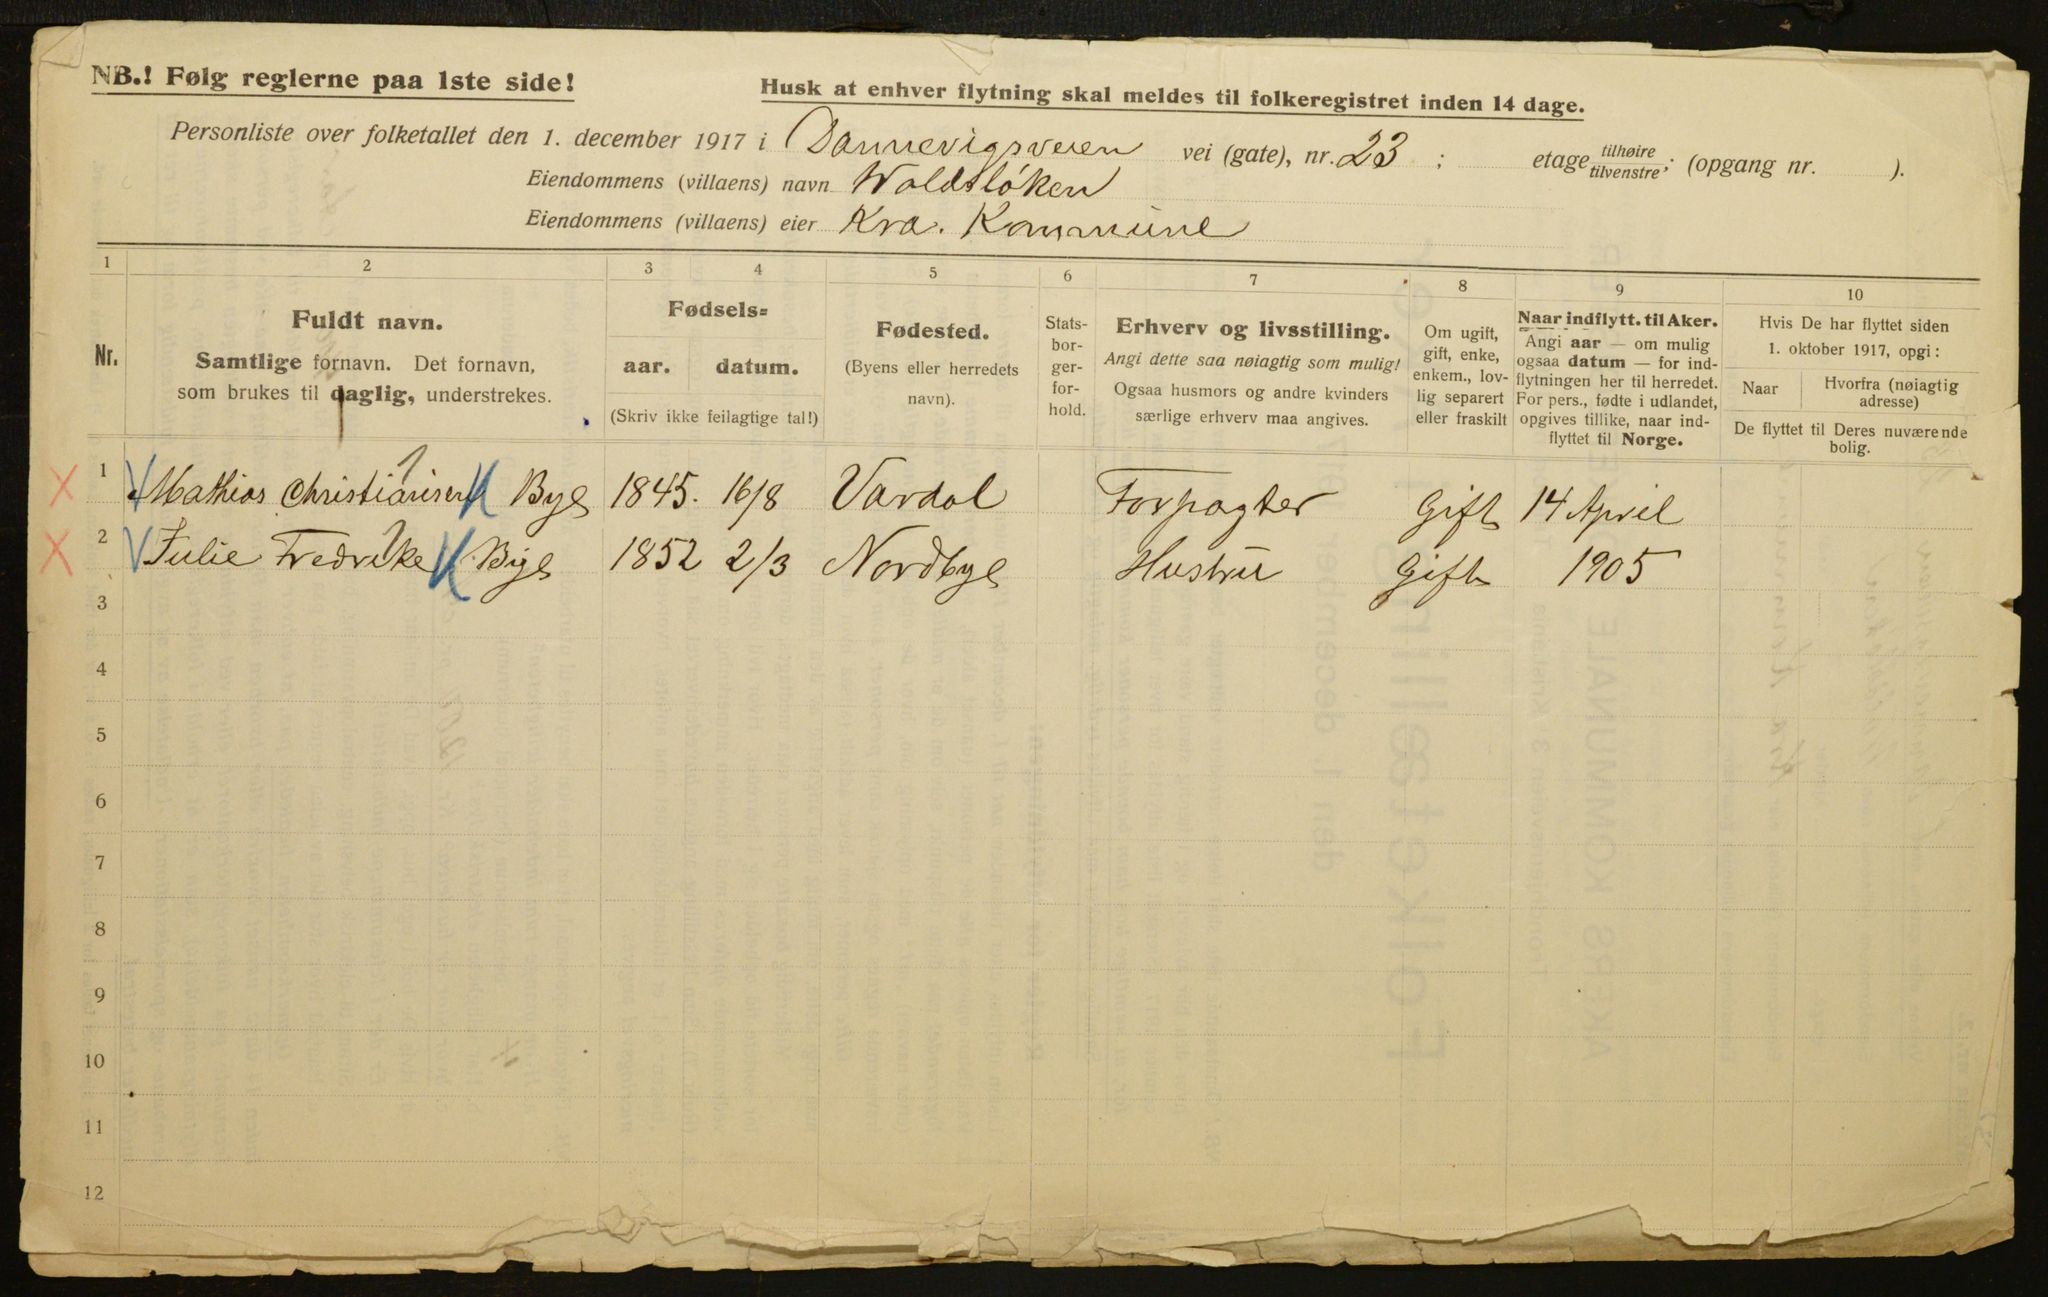 NB.! Følg reglerne paa 1ste side!
Husk at enhver flytning skal meldes til folkeregistret inden 14 dage.
Personliste over folketallet den 1. december 1917 i Dannevigsveien vei (gate), nr. 23 ; etage tilhøire/tilvenstre; (opgang nr. ).
Eiendommens (villaens) navn Voldsløken
Eiendommens (villaens) eier Kra. Kommune
1 2 3 4 5 6 7 8 9 10
Nr.
Fuldt navn.
Samtlige fornavn. Det fornavn,
som brukes til daglig, understrekes.
Fødsels=
aar. datum.
(Skriv ikke feilagtige tal!)
Fødested.
(Byens eller herredets
navn).
Stats-
bor-
ger-
for-
hold.
Erhverv og livsstilling.
Angi dette saa nøiagtig som mulig!
Ogsaa husmors og andre kvinders
særlige erhverv maa angives.
Om ugift,
gift, enke,
enkem., lov-
lig separert
eller fraskilt
Naar indflytt. til Aker.
Angi aar — om mulig
ogsaa datum — for ind-
flytningen her til herredet.
For pers., fødte i udlandet,
opgives tillike, naar ind-
flyttet til Norge.
Hvis De har flyttet siden
1. oktober 1917, opgi:
Naar
Hvorfra (nøiagtig
adresse)
De flyttet til Deres nuværende
bolig.
1 Mathias Christiansen Bye 1845. 16/8 Vardal Forpagter Gift 14 April
2 Julie Fredrike Bye 1852 2/3 Nordbye Hustru Gift 1905
3
4
5
6
7
8
9
10
11
12